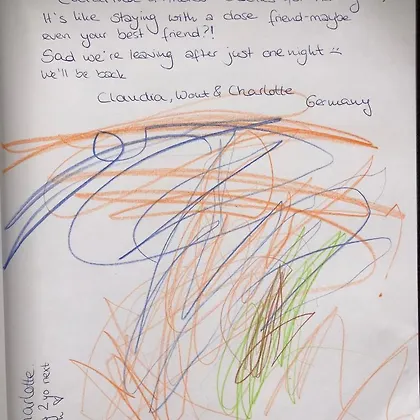 It's like staying with a close friend-maybe
even your best friend?!
Sad we're leaving after just one night
We'll be back
Claudia, Wout & Charlotte
Germany
harlotte.
2 yo next